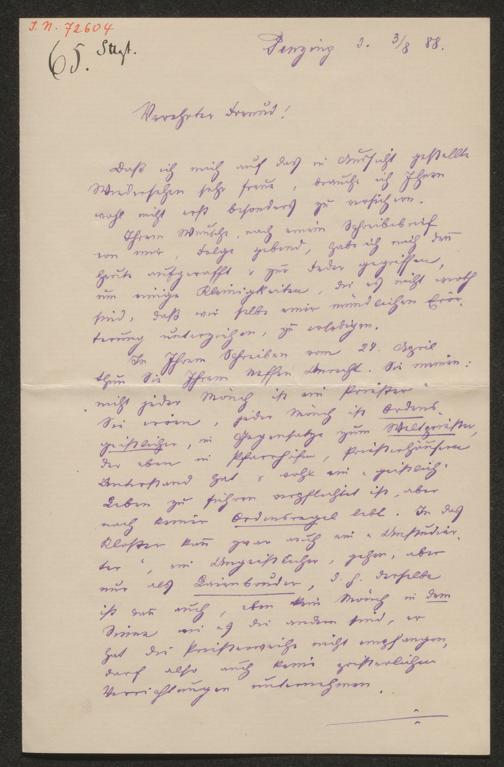 J.N. 72604
65. Stgt.
Penzing d. 3/8 88.
Verehrter Freund!
Daß ich mich auf das in Aussicht gestellte
Wiedersehen sehr freue, brauche ich Ihnen
wohl nicht erst besonders zu versichern.
Ihrem Wunsche, nach einem Schreibebrief
von mir, Folge gebend, habe ich mich denn
heute aufgerafft u. zur Feder gegriffen,
um einige Kleinigkeiten, die es nicht werth
sind, daß wir selbe einer mündlichen Erör-
terung unterziehen, zu erledigen.
In Ihrem Schreiben vom 24. April
thun Sie Ihrem Neffen Unrecht. Sie meinen:
„nicht jeder Mönch ist ein Priester"
Sie irren, jeder Mönch ist Ordens-
geistlicher, im Gegensatze zum Weltpriester,
der eben in Pfarrhöfen, Priesterhäusern
Unterstand hat u. wohl ein „geistlich"
Leben zu führen verpflichtet ist, aber
nach keiner Ordensregel lebt. In das
Kloster kann zwar auch ein „Unstudier-
ter", ein Ungeistlicher, gehen, aber
nur als Laienbruder, d. h. derselbe
ist dann auch, eben kein Mönch in dem
Sinne wie es die andern sind, er
hat die Priesterweihe nicht empfangen,
darf also auch keine priesterlichen
Verrichtungen unternehmen.